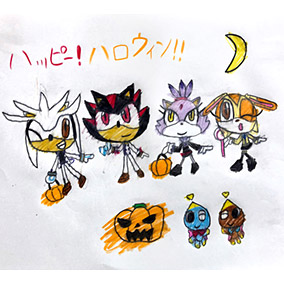 ハッピー!ハロウィン!!